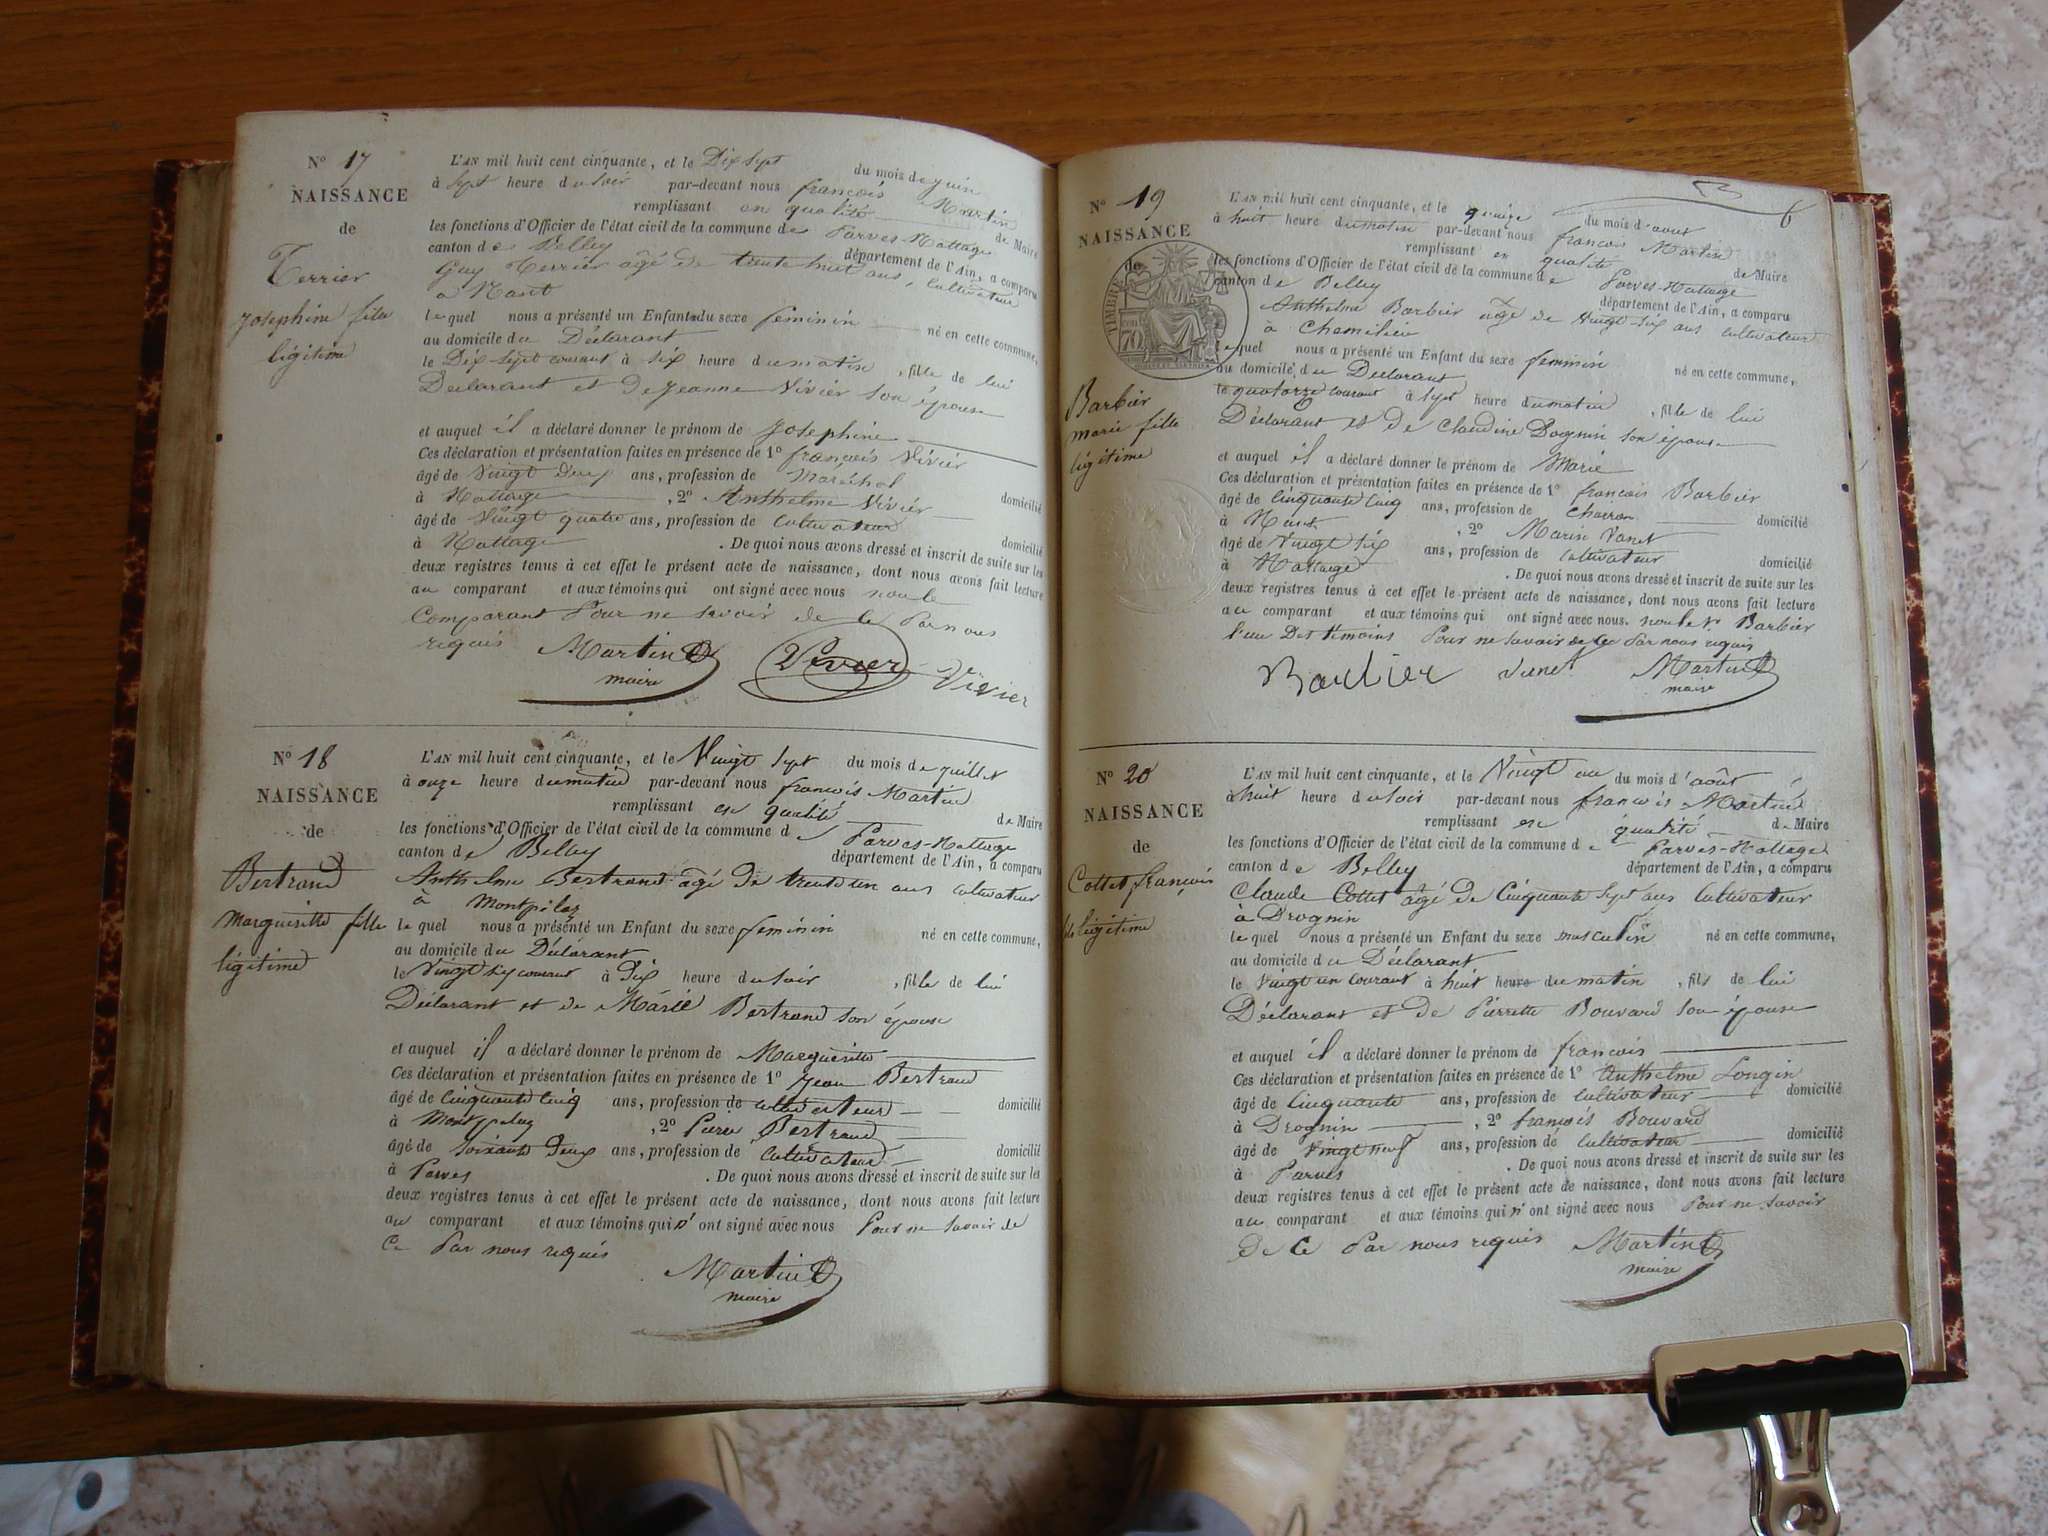 N° 17
NAISSANCE
de
Terrier
Josephine fille
légitime
L'AN mil huit cent cinquante, et le Dix sept du mois de juin
à sept heure du soir par-devant nous françois Martin
remplissant en qualité de Maire
les fonctions d'Officier de l'état civil de la commune de Parves-Nattage
canton de Belley département de l'Ain, a comparu
Guy Terrier âgé de trente huit ans, cultivateur
à Nant
lequel nous a présenté un Enfant du sexe feminin né en cette commune,
au domicile du Déclarant
le Dix sept courant à six heure du matin, fille de lui
Déclarant et de jeanne Vivier son épouse
et auquel il a déclaré donner le prénom de Josephine
Ces déclaration et présentation faites en présence de 1° françois Vivier
âgé de Vingt deux ans, profession de Maréchal domicilié
à Nattage, 2° Anthelme Vivier
âgé de Vingt quatre ans, profession de cultivateur domicilié
à Nattage. De quoi nous avons dressé et inscrit de suite sur les
deux registres tenus à cet effet le présent acte de naissance, dont nous avons fait lecture
au comparant et aux témoins qui ont signé avec nous non le
Comparant Pour ne savoir de ce Par nous
requis Martin Vivier Vivier
maire
N° 18
NAISSANCE
de
Bertrand
Margueritte fille
légitime
L'AN mil huit cent cinquante, et le Vingt sept du mois de juillet
à onze heure du matin par-devant nous françois Martin
remplissant en qualité de Maire
les fonctions d'Officier de l'état civil de la commune de Parves-Nattage
canton de Belley département de l'Ain, a comparu
Anthelme Bertrand âgé de trente un ans cultivateur
à Montpelaz
lequel nous a présenté un Enfant du sexe feminin né en cette commune,
au domicile du Déclarant
le Vingt six courant à Dix heure du soir, fille de lui
Déclarant et de Marie Bertrand son épouse
et auquel il a déclaré donner le prénom de Margueritte
Ces déclaration et présentation faites en présence de 1° Jean Bertrand
âgé de Cinquante Cinq ans, profession de cultivateur domicilié
à Montpelaz, 2° Pierre Bertrand
âgé de Soixante Deux ans, profession de Cultivateur domicilié
à Parves. De quoi nous avons dressé et inscrit de suite sur les
deux registres tenus à cet effet le présent acte de naissance, dont nous avons fait lecture
au comparant et aux témoins qui n'ont signé avec nous Pour ne savoir de
Ce Par nous requis
Martin
maire
6
N° 19
NAISSANCE
de
TIMBRE
70
Barbier
marie fille
légitime
L'AN mil huit cent cinquante, et le quinze du mois d'aout
à huit heure du matin par-devant nous françois Martin
remplissant en qualité de Maire
les fonctions d'Officier de l'état civil de la commune de Parves-Nattage
canton de Belley département de l'Ain, a comparu
Anthelme Barbier âgé de Vingt-six ans cultivateur
à Chemilieu
lequel nous a présenté un Enfant du sexe feminin né en cette commune,
au domicile du Déclarant
le quatorze courant à sept heure du matin, fille de lui
Déclarant et de Claudine Dognin son épouse
et auquel il a déclaré donner le prénom de Marie
Ces déclaration et présentation faites en présence de 1° françois Barbier
âgé de Cinquante Cinq ans, profession de Charron domicilié
à Nant, 2° Marin Vanet
âgé de Vingt six ans, profession de Cultivateur domicilié
à Nattage. De quoi nous avons dressé et inscrit de suite sur les
deux registres tenus à cet effet le présent acte de naissance, dont nous avons fait lecture
au comparant et aux témoins qui ont signé avec nous. non le Barbier
l'un Des témoins Pour ne savoir de Ce Par nous requis
Barbier Martin
maire
N° 20
NAISSANCE
de
Cottet françois
fils légitime
L'AN mil huit cent cinquante, et le Vingt un du mois d'août
à huit heure du soir par-devant nous françois Martin
remplissant en qualité de Maire
les fonctions d'Officier de l'état civil de la commune de Parves-Nattage
canton de Belley département de l'Ain, a comparu
Claude Cottet âgé de Cinquante sept ans Cultivateur
à Drognin
lequel nous a présenté un Enfant du sexe masculin né en cette commune,
au domicile du Déclarant
le Vingt un Courant à huit heure du matin, fils de lui
Déclarant et de Pierrette Bouvard son épouse
et auquel il a déclaré donner le prénom de françois
Ces déclaration et présentation faites en présence de 1° Anthelme Longin
âgé de Cinquante ans, profession de Cultivateur domicilié
à Drognin, 2° françois Bouvard
âgé de Vingt neuf ans, profession de Cultivateur domicilié
à Parves. De quoi nous avons dressé et inscrit de suite sur les
deux registres tenus à cet effet le présent acte de naissance, dont nous avons fait lecture
au comparant et aux témoins qui n'ont signé avec nous Pour ne savoir
De Ce Par nous requis Martin
maire